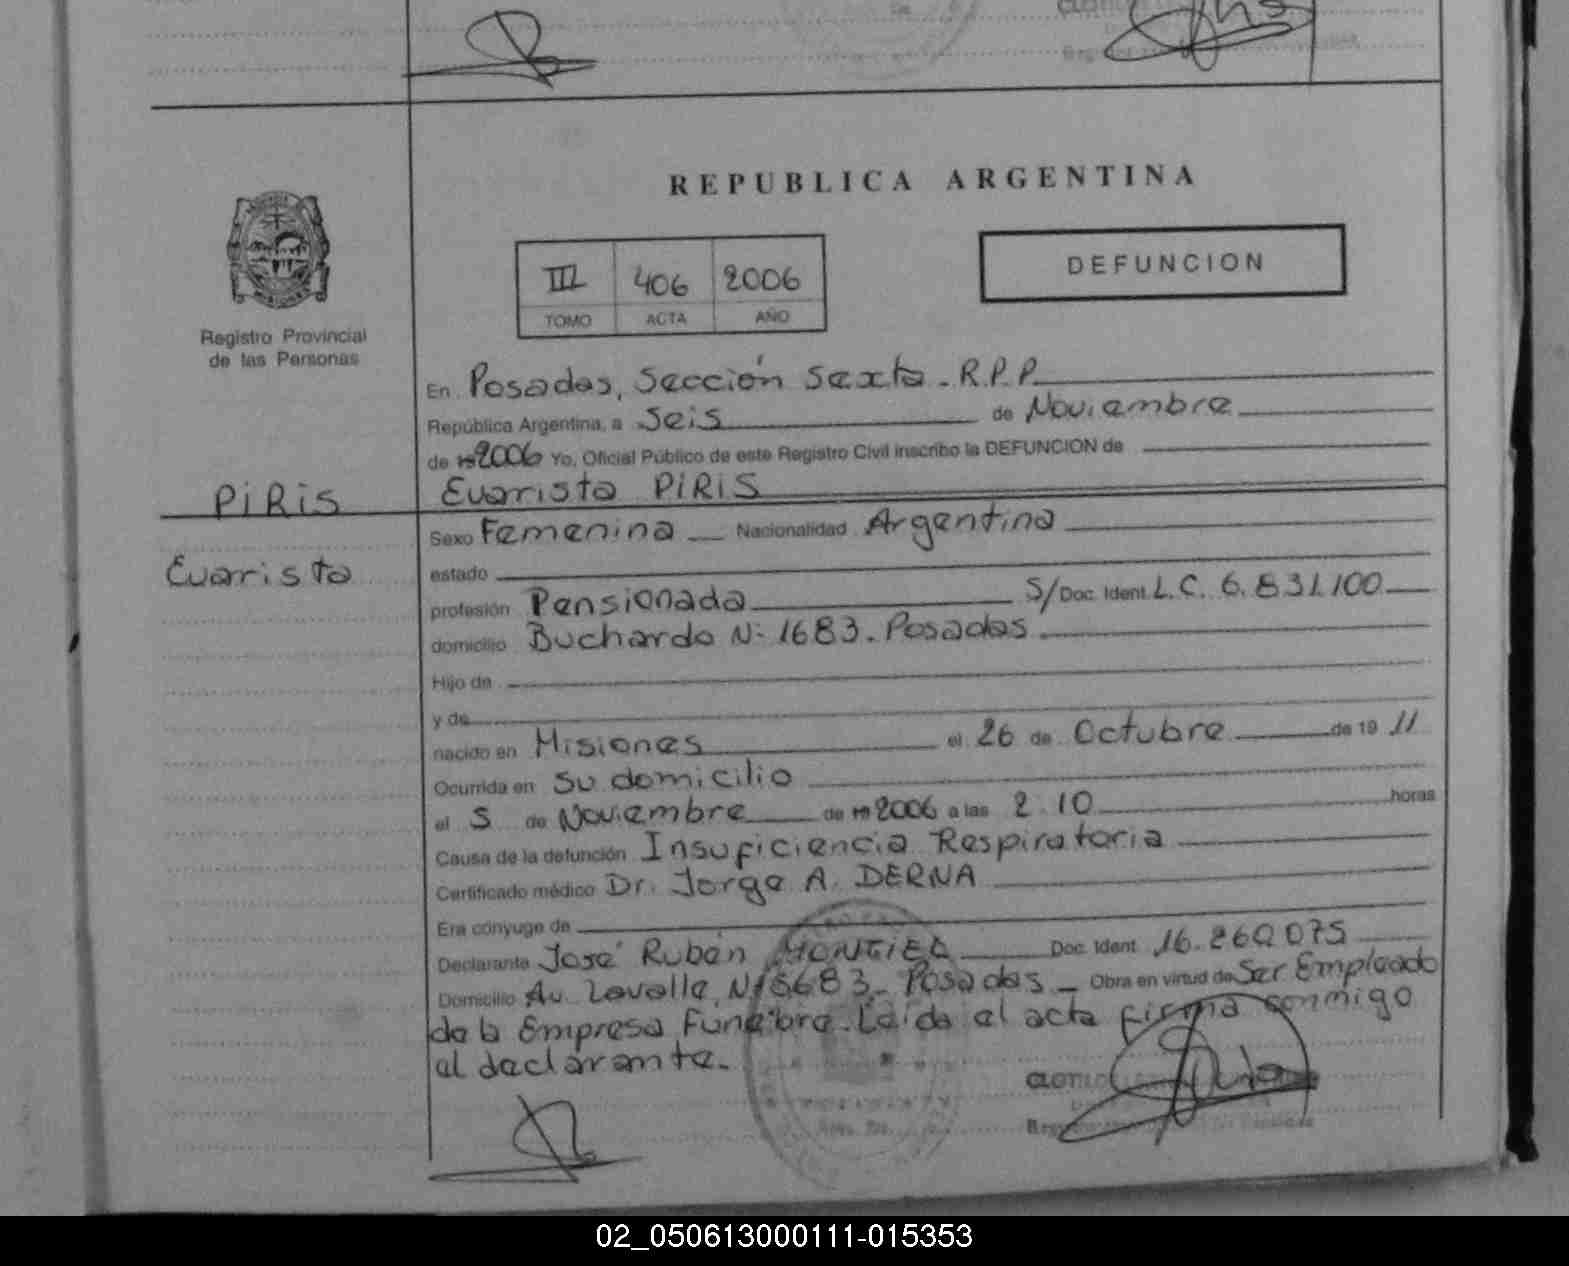 REPUBLICA ARGENTINA
III 406 2006
TOMO ACTA AÑO
DEFUNCION
Registro Provincial
de las Personas
En Posadas, Sección Sexta. R.P.P.
República Argentina, a Seis de Noviembre
de 19 2006 Yo, Oficial Público de este Registro Civil inscribo la DEFUNCION de
PIRIS
Evarista PIRIS
Evarista
Sexo Femenina Nacionalidad Argentina
estado
profesión Pensionada S/Doc. Ident. L.C. 6.831.100
domicilio Buchardo N: 1683. Posadas
Hijo de
y de
nacido en Misiones el 26 de Octubre de 19 11
Ocurrida en su domicilio
el 5 de Noviembre de 19 2006 a las 2.10 horas
Causa de la defunción Insuficiencia Respiratoria
Certificado médico Dr. Jorge A. DERNA
Era cónyuge de
Declarante José Rubén MONTIEL Doc. Ident. 16.260.075
Domicilio Av. Lavalle N: 5683. Posadas Obra en virtud de Ser Empleado
de la Empresa Funebre. Leída el acta firma conmigo
el declarante.
02_050613000111-015353